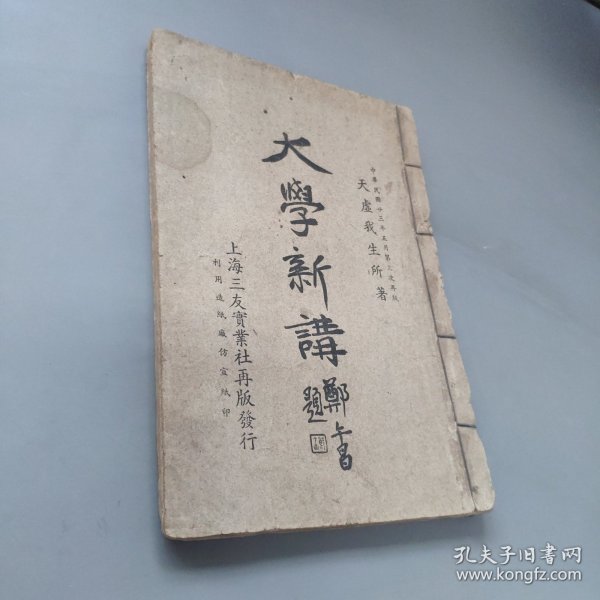 中華民國廿三年五月第七次再版
天虛我生所著
大學新講
鄭午昌
題
上海三友實業社再版發行
利用造紙廠仿宣紙印
孔夫子旧书网
www.kongfz.com